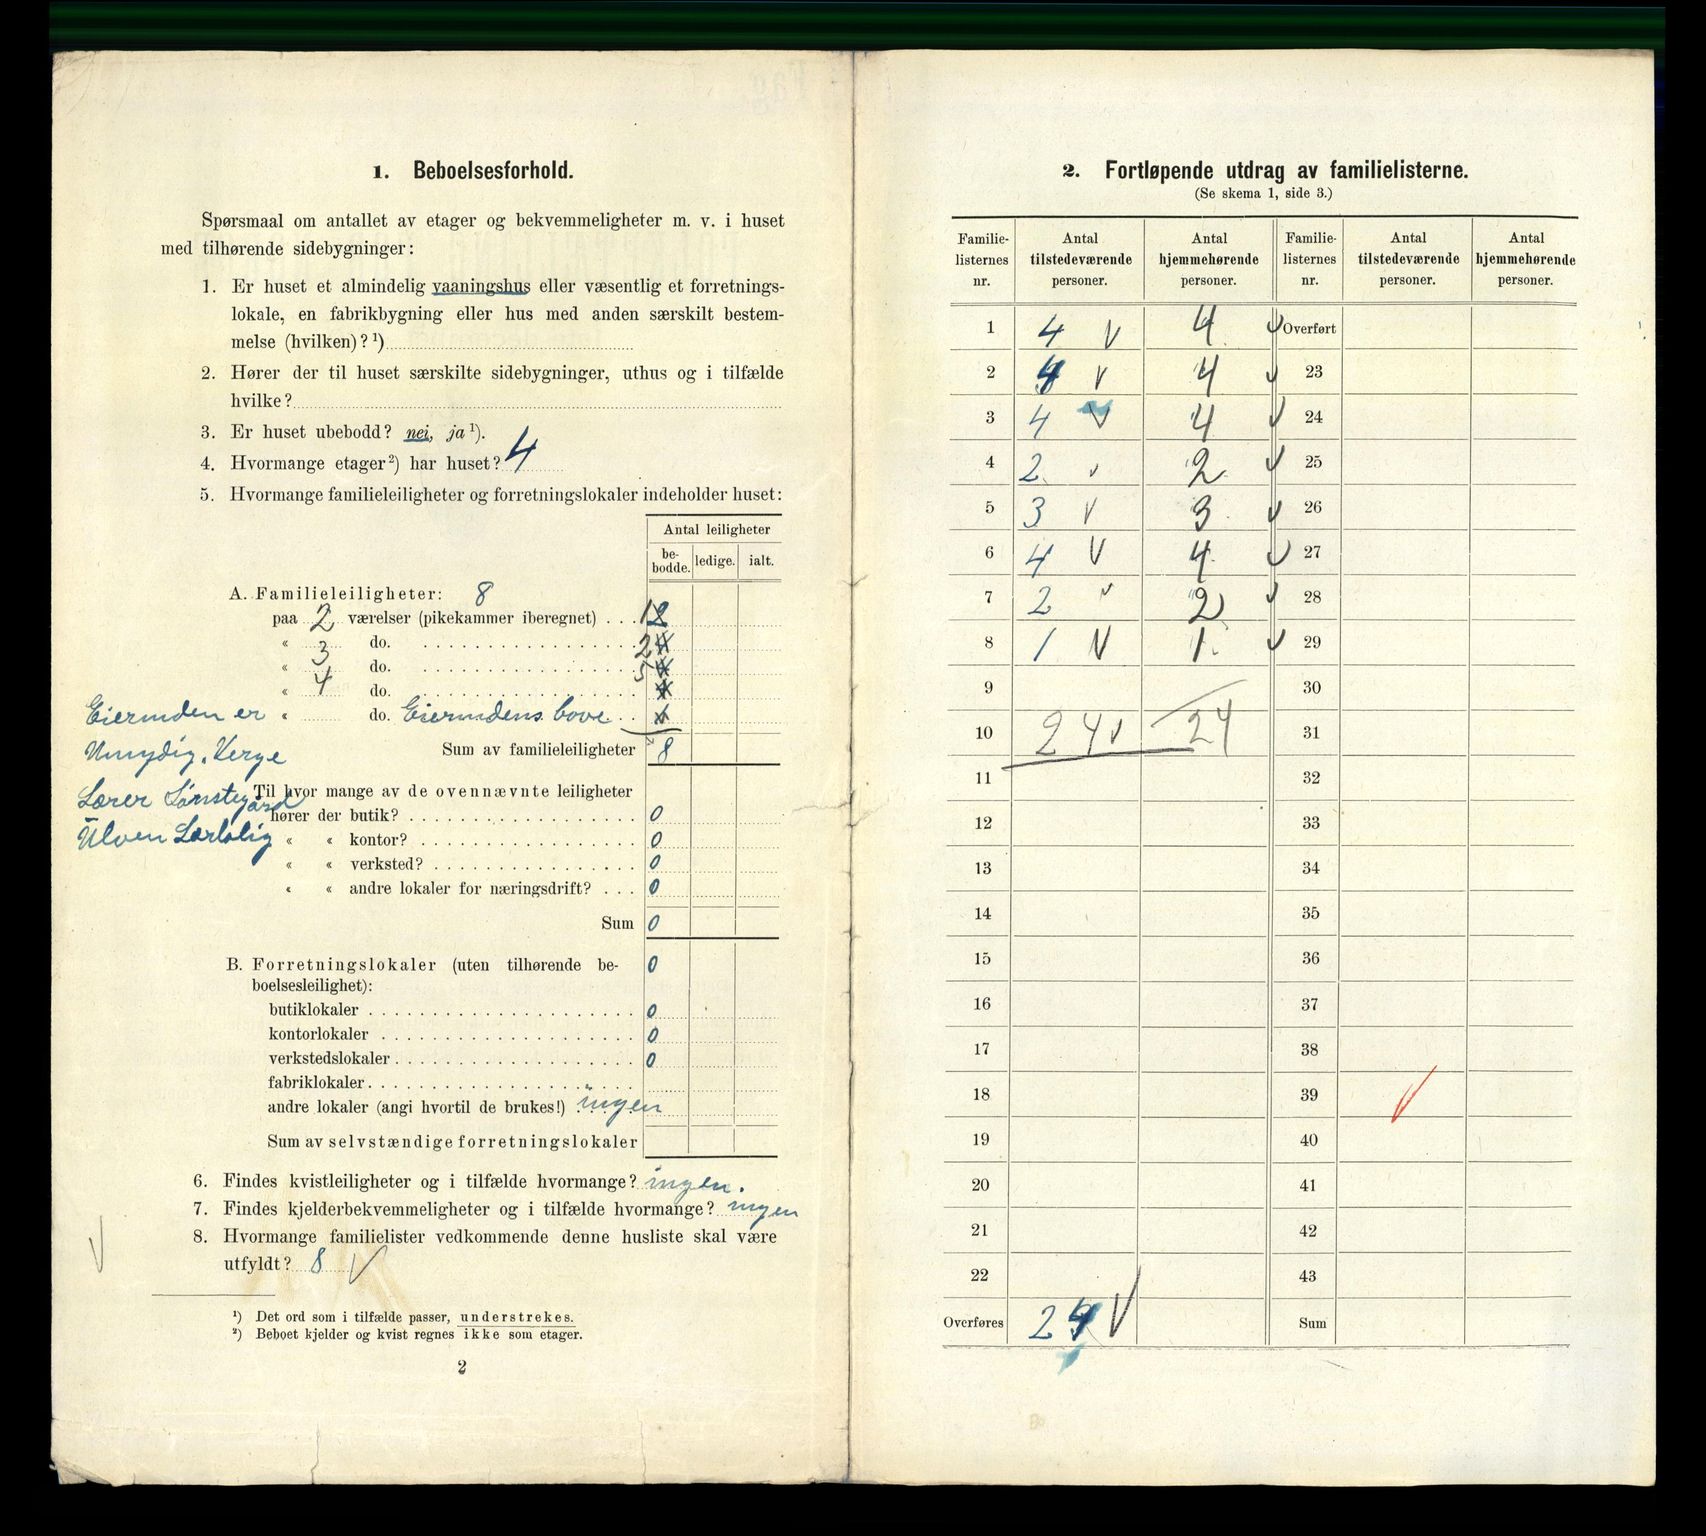 1. Beboelsesforhold.
Spørsmaal om antallet av etager og bekvemmeligheter m. v. i huset
med tilhørende sidebygninger:
1. Er huset et almindelig vaaningshus eller væsentlig et forretnings-
lokale, en fabrikbygning eller hus med anden særskilt bestem-
melse (hvilken)? ¹)
2. Hører der til huset særskilte sidebygninger, uthus og i tilfælde
hvilke?
3. Er huset ubebodd? nei, ja ¹).
4. Hvormange etager ²) har huset? 4
5. Hvormange familieleiligheter og forretningslokaler indeholder huset:
Antal leiligheter
be-bodde. ledige. ialt.
A. Familieleiligheter: 8
paa 2 værelser (pikekammer iberegnet) . . . 1
« 3 do. 2
« 4 do. 5
« do.
Eierinden er « do. Eierindens bove
Umyndig. Verge Sum av familieleiligheter 8
Lærer Til hvor mange av de ovennævnte leiligheter
hører der butik? 0
Ulven « « kontor? 0
« « verksted? 0
« « andre lokaler for næringsdrift? . . . 0
Sum 0
B. Forretningslokaler (uten tilhørende be- 0
boelsesleilighet):
butiklokaler 0
kontorlokaler 0
verkstedslokaler 0
fabriklokaler
andre lokaler (angi hvortil de brukes!) ingen
Sum av selvstændige forretningslokaler
6. Findes kvistleiligheter og i tilfælde hvormange? ingen.
7. Findes kjelderbekvemmeligheter og i tilfælde hvormange? ingen
8. Hvormange familielister vedkommende denne husliste skal være
utfyldt? 8 V
¹) Det ord som i tilfælde passer, understrekes.
²) Beboet kjelder og kvist regnes ikke som etager.
2
2. Fortløpende utdrag av familielisterne.
(Se skema 1, side 3.)
Familie-listernes nr. Antal tilstedeværende personer. Antal hjemmehørende personer. Familie-listernes nr. Antal tilstedeværende personer. Antal hjemmehørende personer.
1 4 V 4 V Overført
2 4 V 4 V 23
3 4 V 4 V 24
4 2 V 2 V 25
5 3 V 3 V 26
6 4 V 4 V 27
7 2 V 2 V 28
8 1 V 1 V 29
9 30
10 24 V 24 31
11 32
12 33
13 34
14 35
15 36
16 37
17 38
18 39 V
19 40
20 41
21 42
22 43
Overføres 24 V Sum